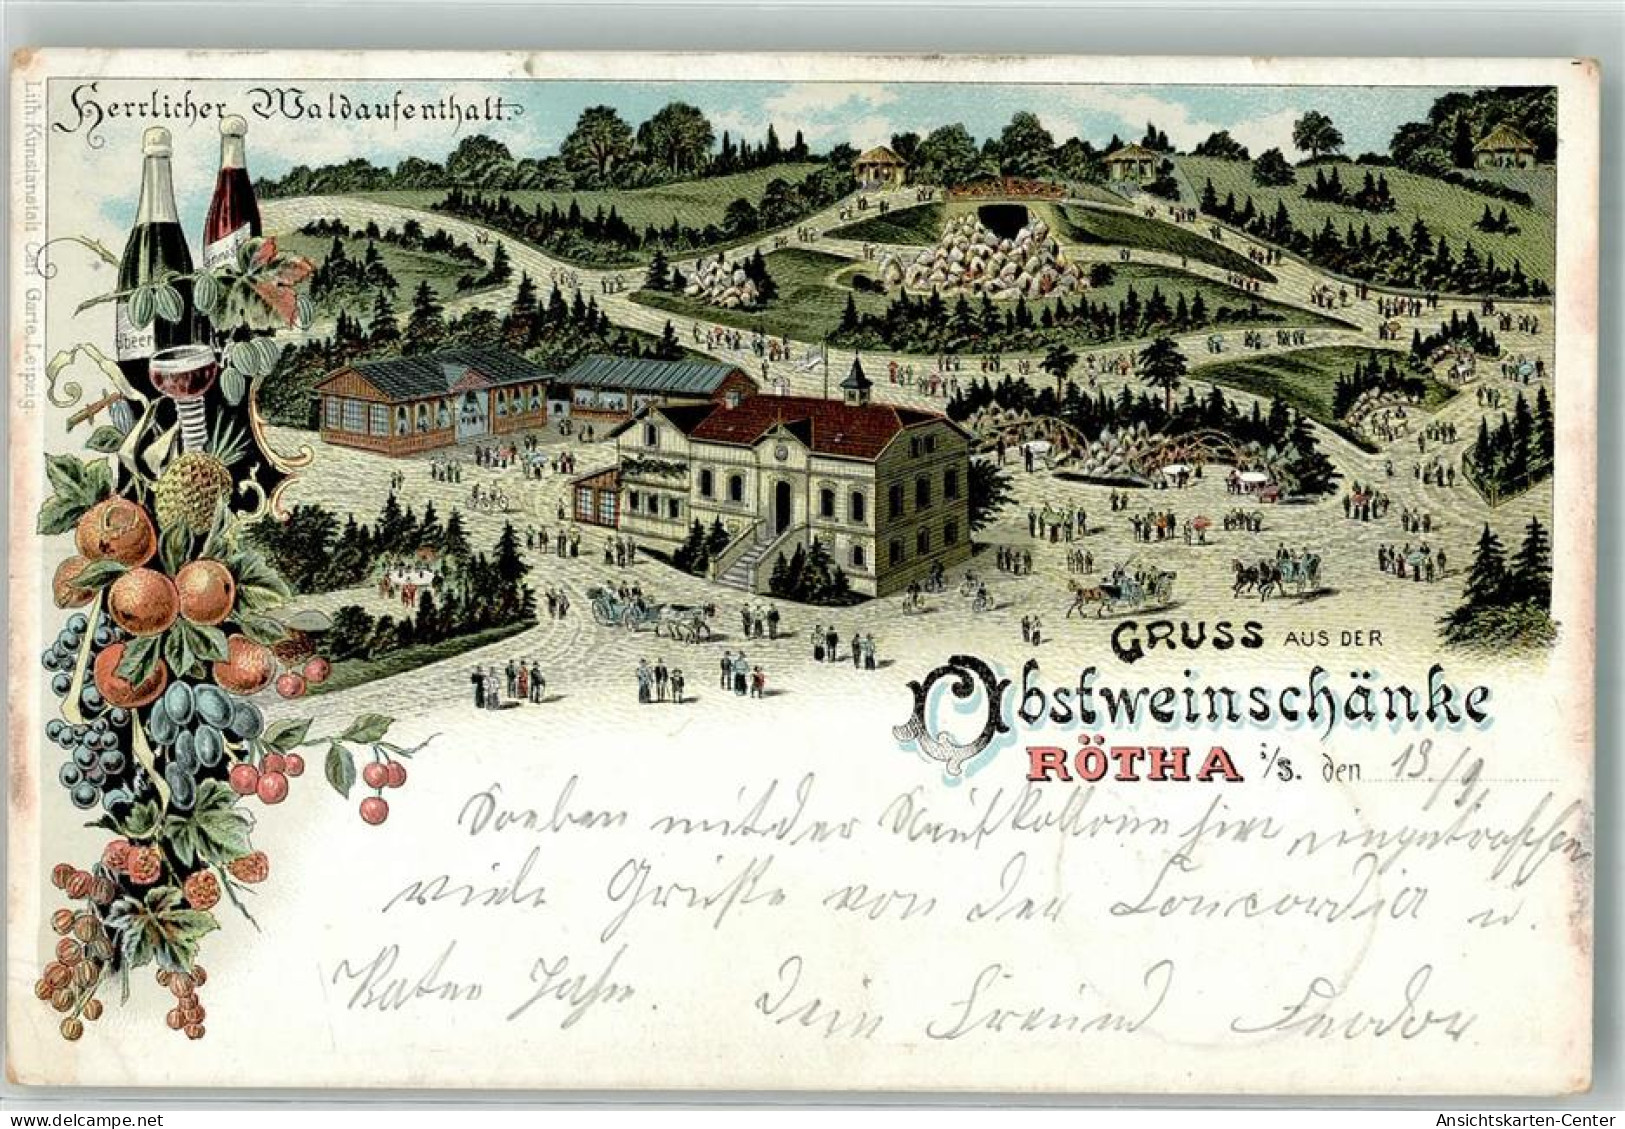 Herrlicher Waldaufenthalt.
Lith. Kunstanstalt Carl Garte, Leipzig.
beer
GRUSS AUS DER
Obstweinschänke
RÖTHA i/S. den 13./9.
Soeben mit der hier eingetroffen
viele Grüße von der Concordia u.
Vater Jahn. Dein Freund Feodor
Ansichtskarten-Center